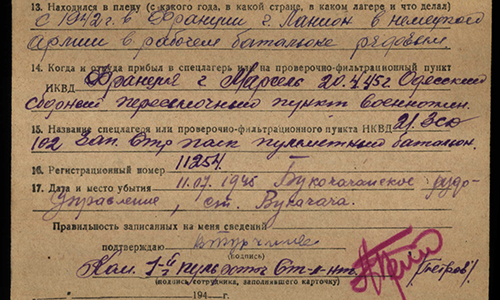 13. Находился в плену (с какого года, в какой стране, в каком лагере и что делал)
с 1942 г. в Франции г. Ланион в немецкой
армии в рабочем батальоне рядовым.
14. Когда и откуда прибыл в спецлагерь или на проверочно-фильтрационный пункт
НКВД Франция г. Марсель 20.4.45 г. Одесский
сборный пересылочный пункт военнопл.
15. Название спецлагеря или проверочно-фильтрационного пункта НКВД 21. Зсд
102 Зап. Стр. полк пулеметный батальон.
16. Регистрационный номер 11254.
17. Дата и место убытия 11.07.1945 Букочачанское рудо-
управление, ст. Букачача.
Правильность записанных на меня сведений
подтверждаю
(подпись)
Ком. 1-й пульроты Ст. л-нт. /Петров/
(подпись сотрудника, заполнявшего карточку)
194 г.